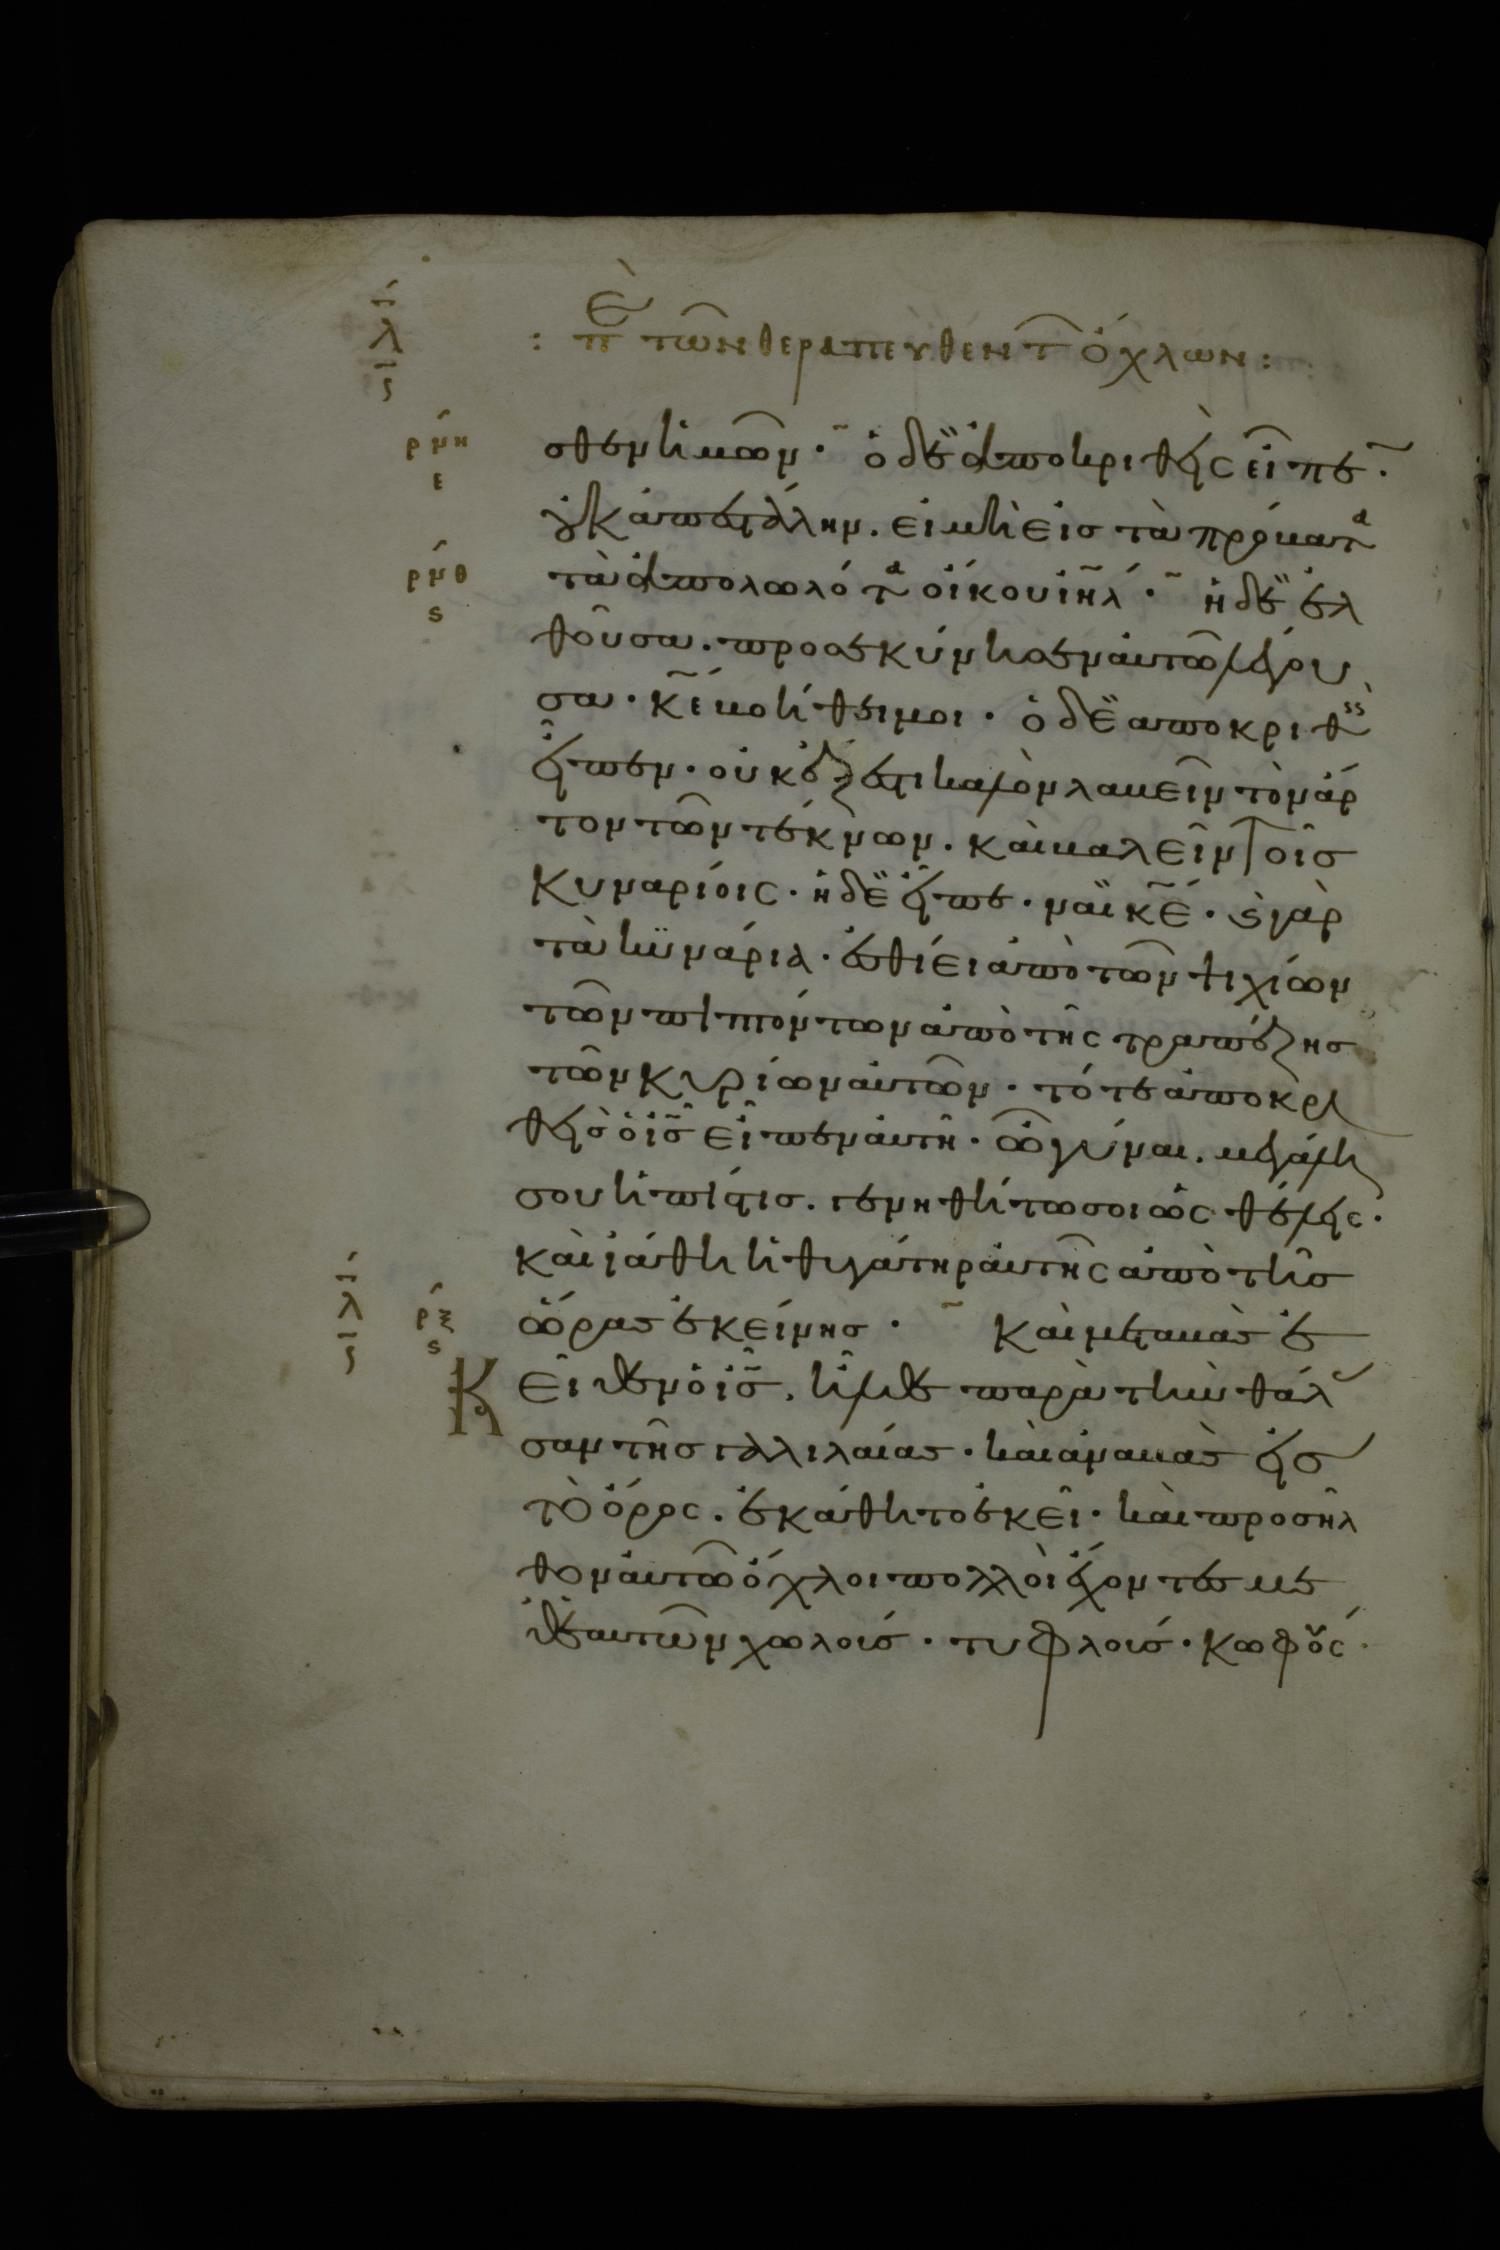 λ̄ϛ
: πε τῶν θεραπευθέντ ὄχλων :
ρμη
ε
σθεν ἡμῶν · ὁ δὲ ἀποκριθεὶς εἶπε ·
οὐκ ἀπεστάλην . εἰ μὴ εἰς τὰ πρόβατα
ρμθ
ϛ
τὰ ἀπολωλότα οἴκου ιηλ · ἡ δὲ ἐλ
θοῦσα . προσεκύνησεν αὐτῶ λέγου
σα · κε βοήθει μοι · ὁ δὲ αποκριθεὶς
εἶπεν · οὐκ ἔξεστι καλὸν λαβεῖν τὸν ἄρ
τον τῶν τέκνων . καὶ βαλεῖν τοῖς
κυναρίοις · ἡ δὲ εἶπε · ναὶ κε · καὶ γὰρ
τὰ κυνάρια · ἐσθίει ἀπὸ τῶν ψιχίων
τῶν πιπτόντων ἀπὸ τῆς τραπέζης
τῶν κυρίων αὐτῶν · τότε ἀποκρι
θεὶς ὁ ις εἶπεν αὐτῆ · ὦ γύναι . μεγάλη
σου ἡ πίστις . γενηθήτω σοι ὡς θέλεις ·
καὶ ἰάθη ἡ θυγάτηρ αὐτῆς ἀπὸ τῆς
λ̄ϛ
ρξ
ϛ
ὥρας ἐκείνης · Και μεταβὰς ἐ
Κ
εῖθεν ὁ ις . ἦλθε παρὰ τὴν θάλ
σαν τῆς γαλιλαίας · καὶ ἀναβὰς εἰς
τὸ ὄρος . ἐκάθητο ἐκεῖ · καὶ προσῆλ
θον αὐτῶ ὄχλοι πολλοὶ ἔχοντες με
θ' εαυτῶν χωλοίς · τυφλοίς · κωφοὺς ·